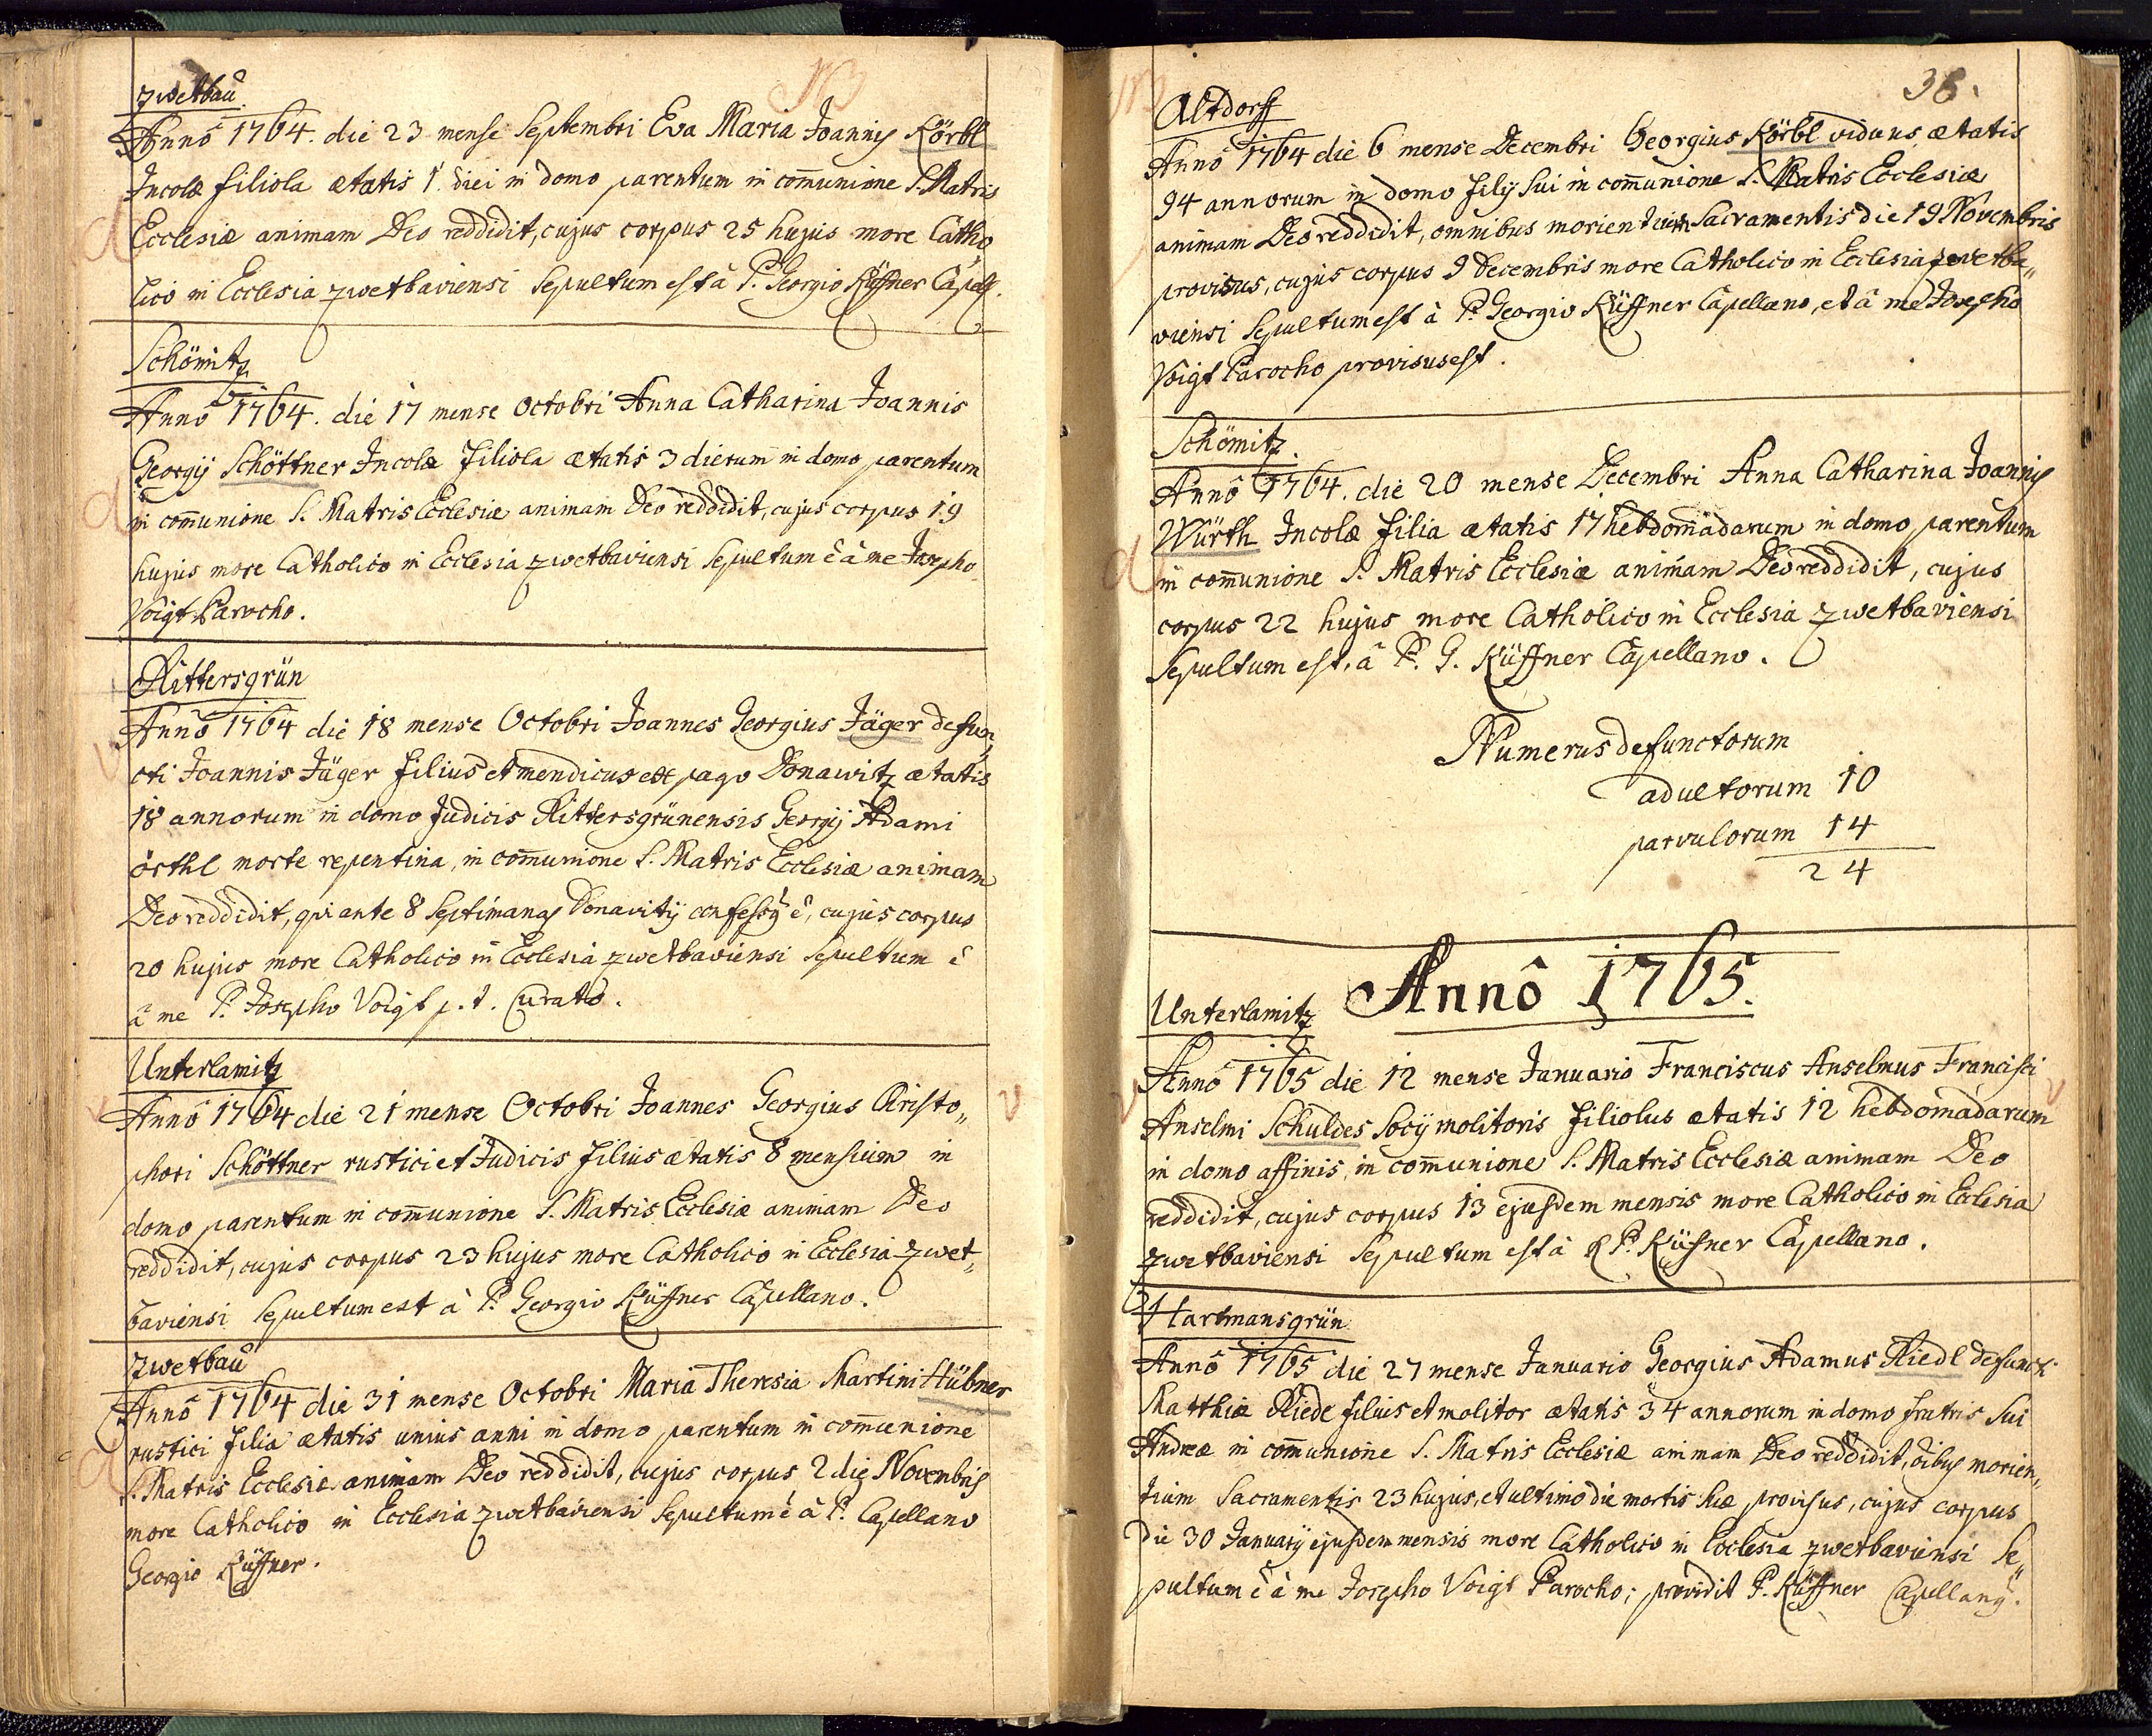 zwetbau
Annô 1764. die 23 mense Septembri Eva Maria Joannis Körbl
Incolæ filiola ætatis 1. diei in domo parentum in com̄unione S. Matris
Ecclesiæ animam Deo reddidit, cujus corpus 25 hujus more Catho
lico in Ecclesia zwetbaviensi sepultum est â P. Georgio Küffner Capell.
Schömitz
Annô 1764. die 17 mense Octobri Anna Catharina Joannis
Georgij Schöttner Incolæ filiola ætatis 3 dierum in domo parentum
in com̄unione S. Matris Ecclesiæ animam Deo reddidit, cujus corpus 19
hujus more Catholico in Ecclesia zwetbaviensi sepultum ê â me Josepho
Voigt Parocho.
Rittersgrün
Annô 1764 die 18 mense Octobri Joannes Georgius Jäger defun„
cti Joannis Jäger filius et mendicus ex pago Donawitz ætatis
18 annorum in domo Judicis Rittersgrünensis Georgij Adami
örthl morte repentina, in com̄unione S. Matris Ecclesiæ animam
Deo reddidit, qui ante 8 septimanas Donavitij confessus ê, cujus corpus
20 hujus more Catholico in Ecclesia zwetbaviensi sepultum ê
â me P. Josepho Voigt p. t. Curato.
Unterlamitz
Annô 1764 die 21 mense Octobri Joannes Georgius Christo„
phori Schöttner rustici et Judicis filius ætatis 8 mensium in
domo parentum in com̄unione S. Matris Ecclesiæ animam Deo
reddidit, cujus corpus 23 hujus more Catholico in Ecclesia zwet„
baviensi sepultum est â P. Georgio Küffner Capellano.
zwetbau
Annô 1764 die 31 mense Octobri Maria Theresia Martini Hübner
rustici filia ætatis unius anni in domo parentum in com̄unione
S. Matris Ecclesiæ animam Deo reddidit, cujus corpus 2 die Novembris
more Catholico in Ecclesia zwetbaviensi sepultum ê â P. Capellano
Georgio Küffner.
36.
Altdorff
Annô 1764 die 6 mense Decembri Georgius Körbl viduus ætatis
94 annorum in domo filij sui in com̄unione S. Matris Ecclesiæ
animam Deo reddidit, omnibus morientium Sacramentis die 19 Novembris
provisus, cujus corpus 9 Decembris more Catholico in Ecclesia zwetba„
viensi sepultum est â P. Georgio Küffner Capellano, et â me Josepho
Voigt Parocho provisus est.
Schömitz.
Annô 1764. die 20 mense Decembri Anna Catharina Joannis
Würth Incolæ filia ætatis 17 hebdom̄adarum in domo parentum
in com̄unione S. Matris Ecclesiæ animam Deo reddidit, cujus
corpus 22 hujus more Catholico in Ecclesia zwetbaviensi
sepultum est, â P. G. Küffner Capellano.
Numerus defunctorum
adultorum 10
parvulorum 14
24
Annô 1765.
Unterlamitz
Annô 1765 die 12 mense Januario Franciscus Anselmus Francisci
Anselmi Schuldes Socij molitoris filiolus ætatis 12 hebdomadarum
in domo affinis, in com̄unione S. Matris Ecclesiæ animam Deo
reddidit, cujus corpus 13 ejusdem mensis more Catholico in Ecclesia
zwetbaviensi sepultum est â R P. Küffner Capellano.
Hartmansgrün
Annô 1765 die 27 mense Januario Georgius Adamus Riedl defuncti
Matthiæ Riedl filius et molitor ætatis 34 annorum in domo fratris sui
Andreæ in com̄unione S. Matris Ecclesiæ animam Deo reddidit, oîbus morien„
tium Sacramentis 23 hujus, et ultimo die mortis suæ provisus, cujus corpus
die 30 Januarij ejusdem mensis more Catholico in Ecclesia zwetbaviensi se„
pultum ê â me Josepho Voigt Parocho; providit P. Küffner Capellanus.